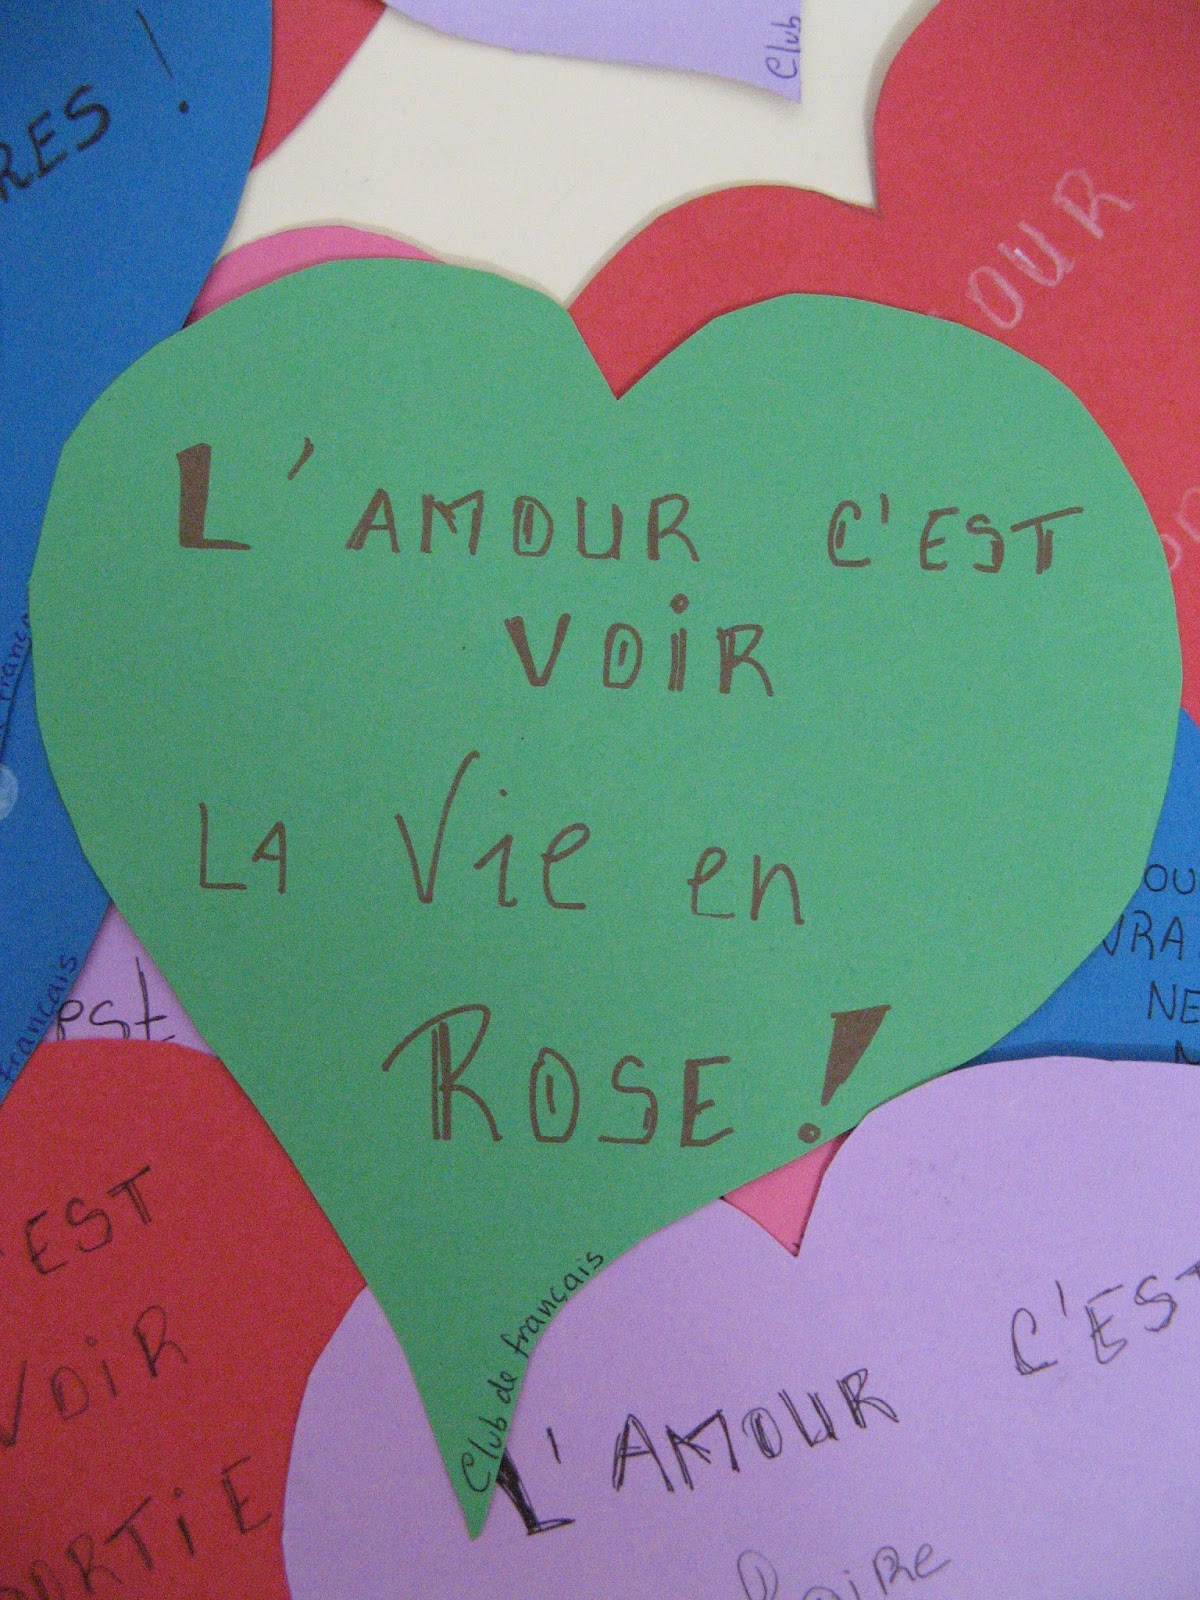 Club
RES !
OUR
L'AMOUR C'EST
VOIR
LA Vie en
ROSE!
Club de français
français
est
OU
VRA
NE
EST
VOIR
ORTIE
L'AMOUR C'EST